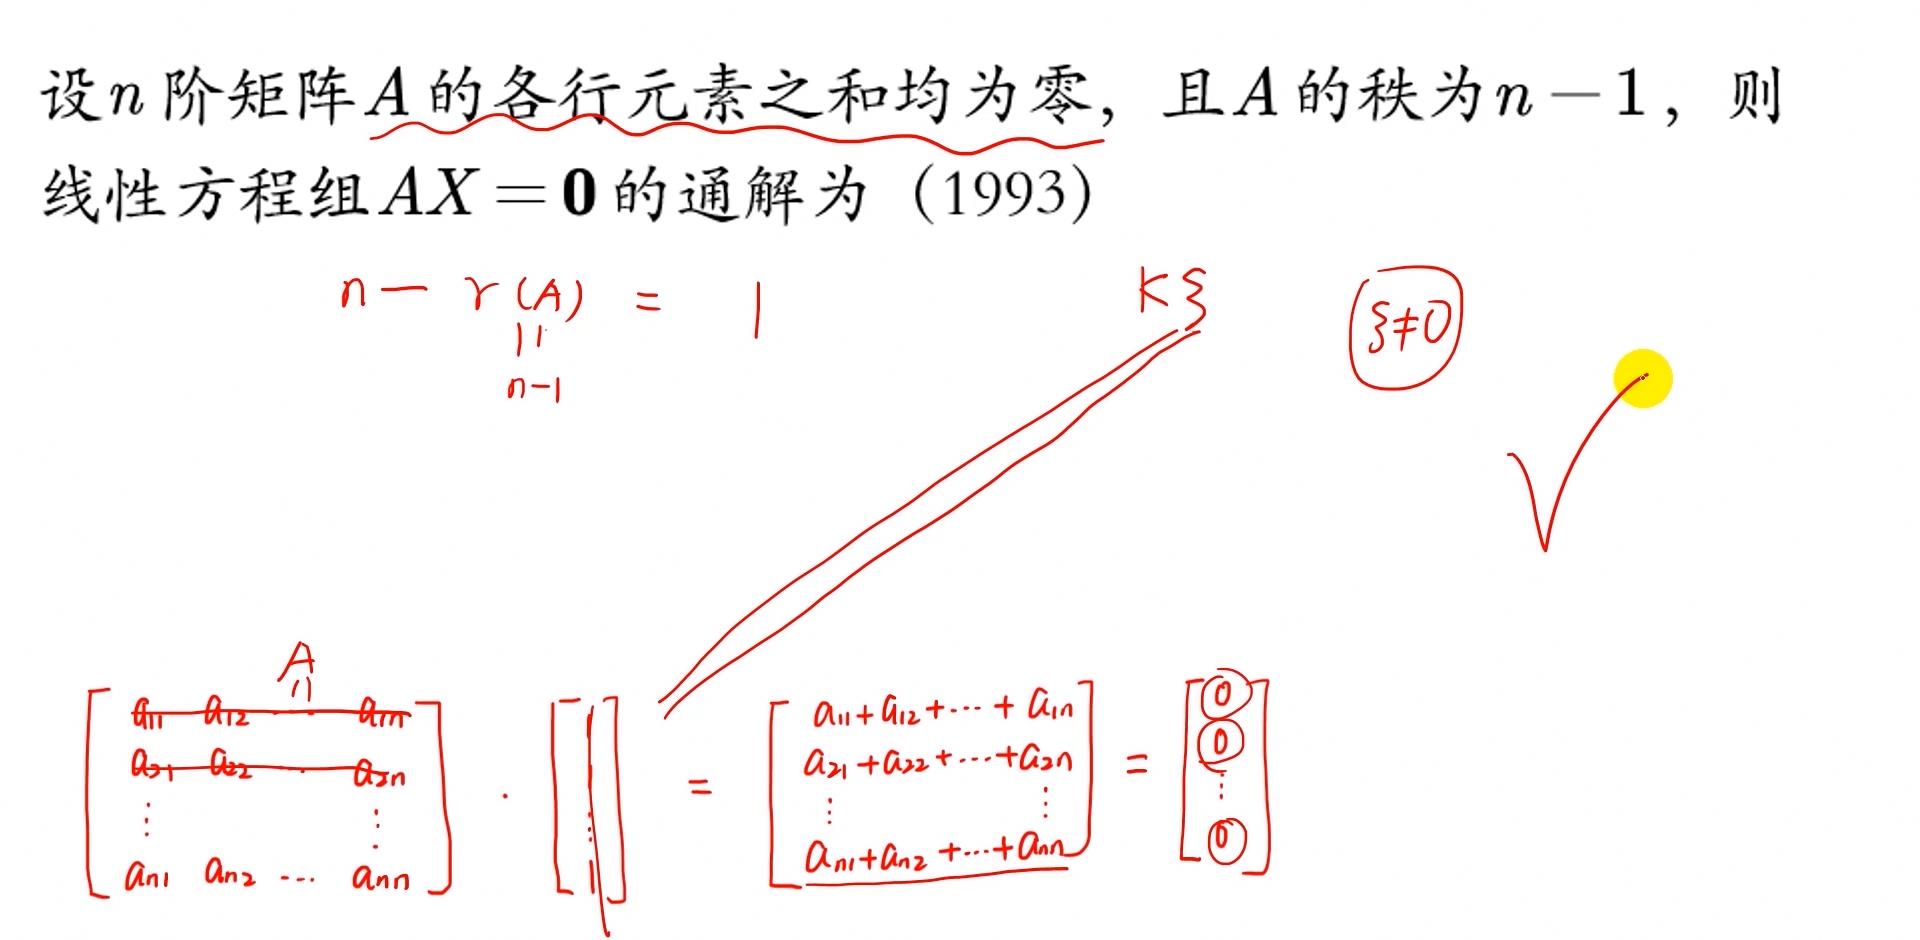 设n阶矩阵A的各行元素之和均为零，且A的秩为n－1，则
线性方程组AX＝0的通解为（1993）
n － r(A) = 1
kξ
ξ≠0
||
n-1
A
||
[a11 a12 … a1n
a21 a22 … a2n
⋮ ⋮
an1 an2 … ann]
·
[1
1
⋮
1]
=
[a11+a12+…+a1n
a21+a22+…+a2n
⋮ ⋮
an1+an2+…+ann]
=
[0
0
⋮
0]